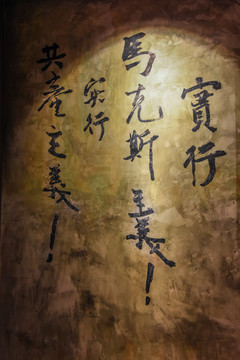 實行
馬克斯主義！
实行
共產主義！